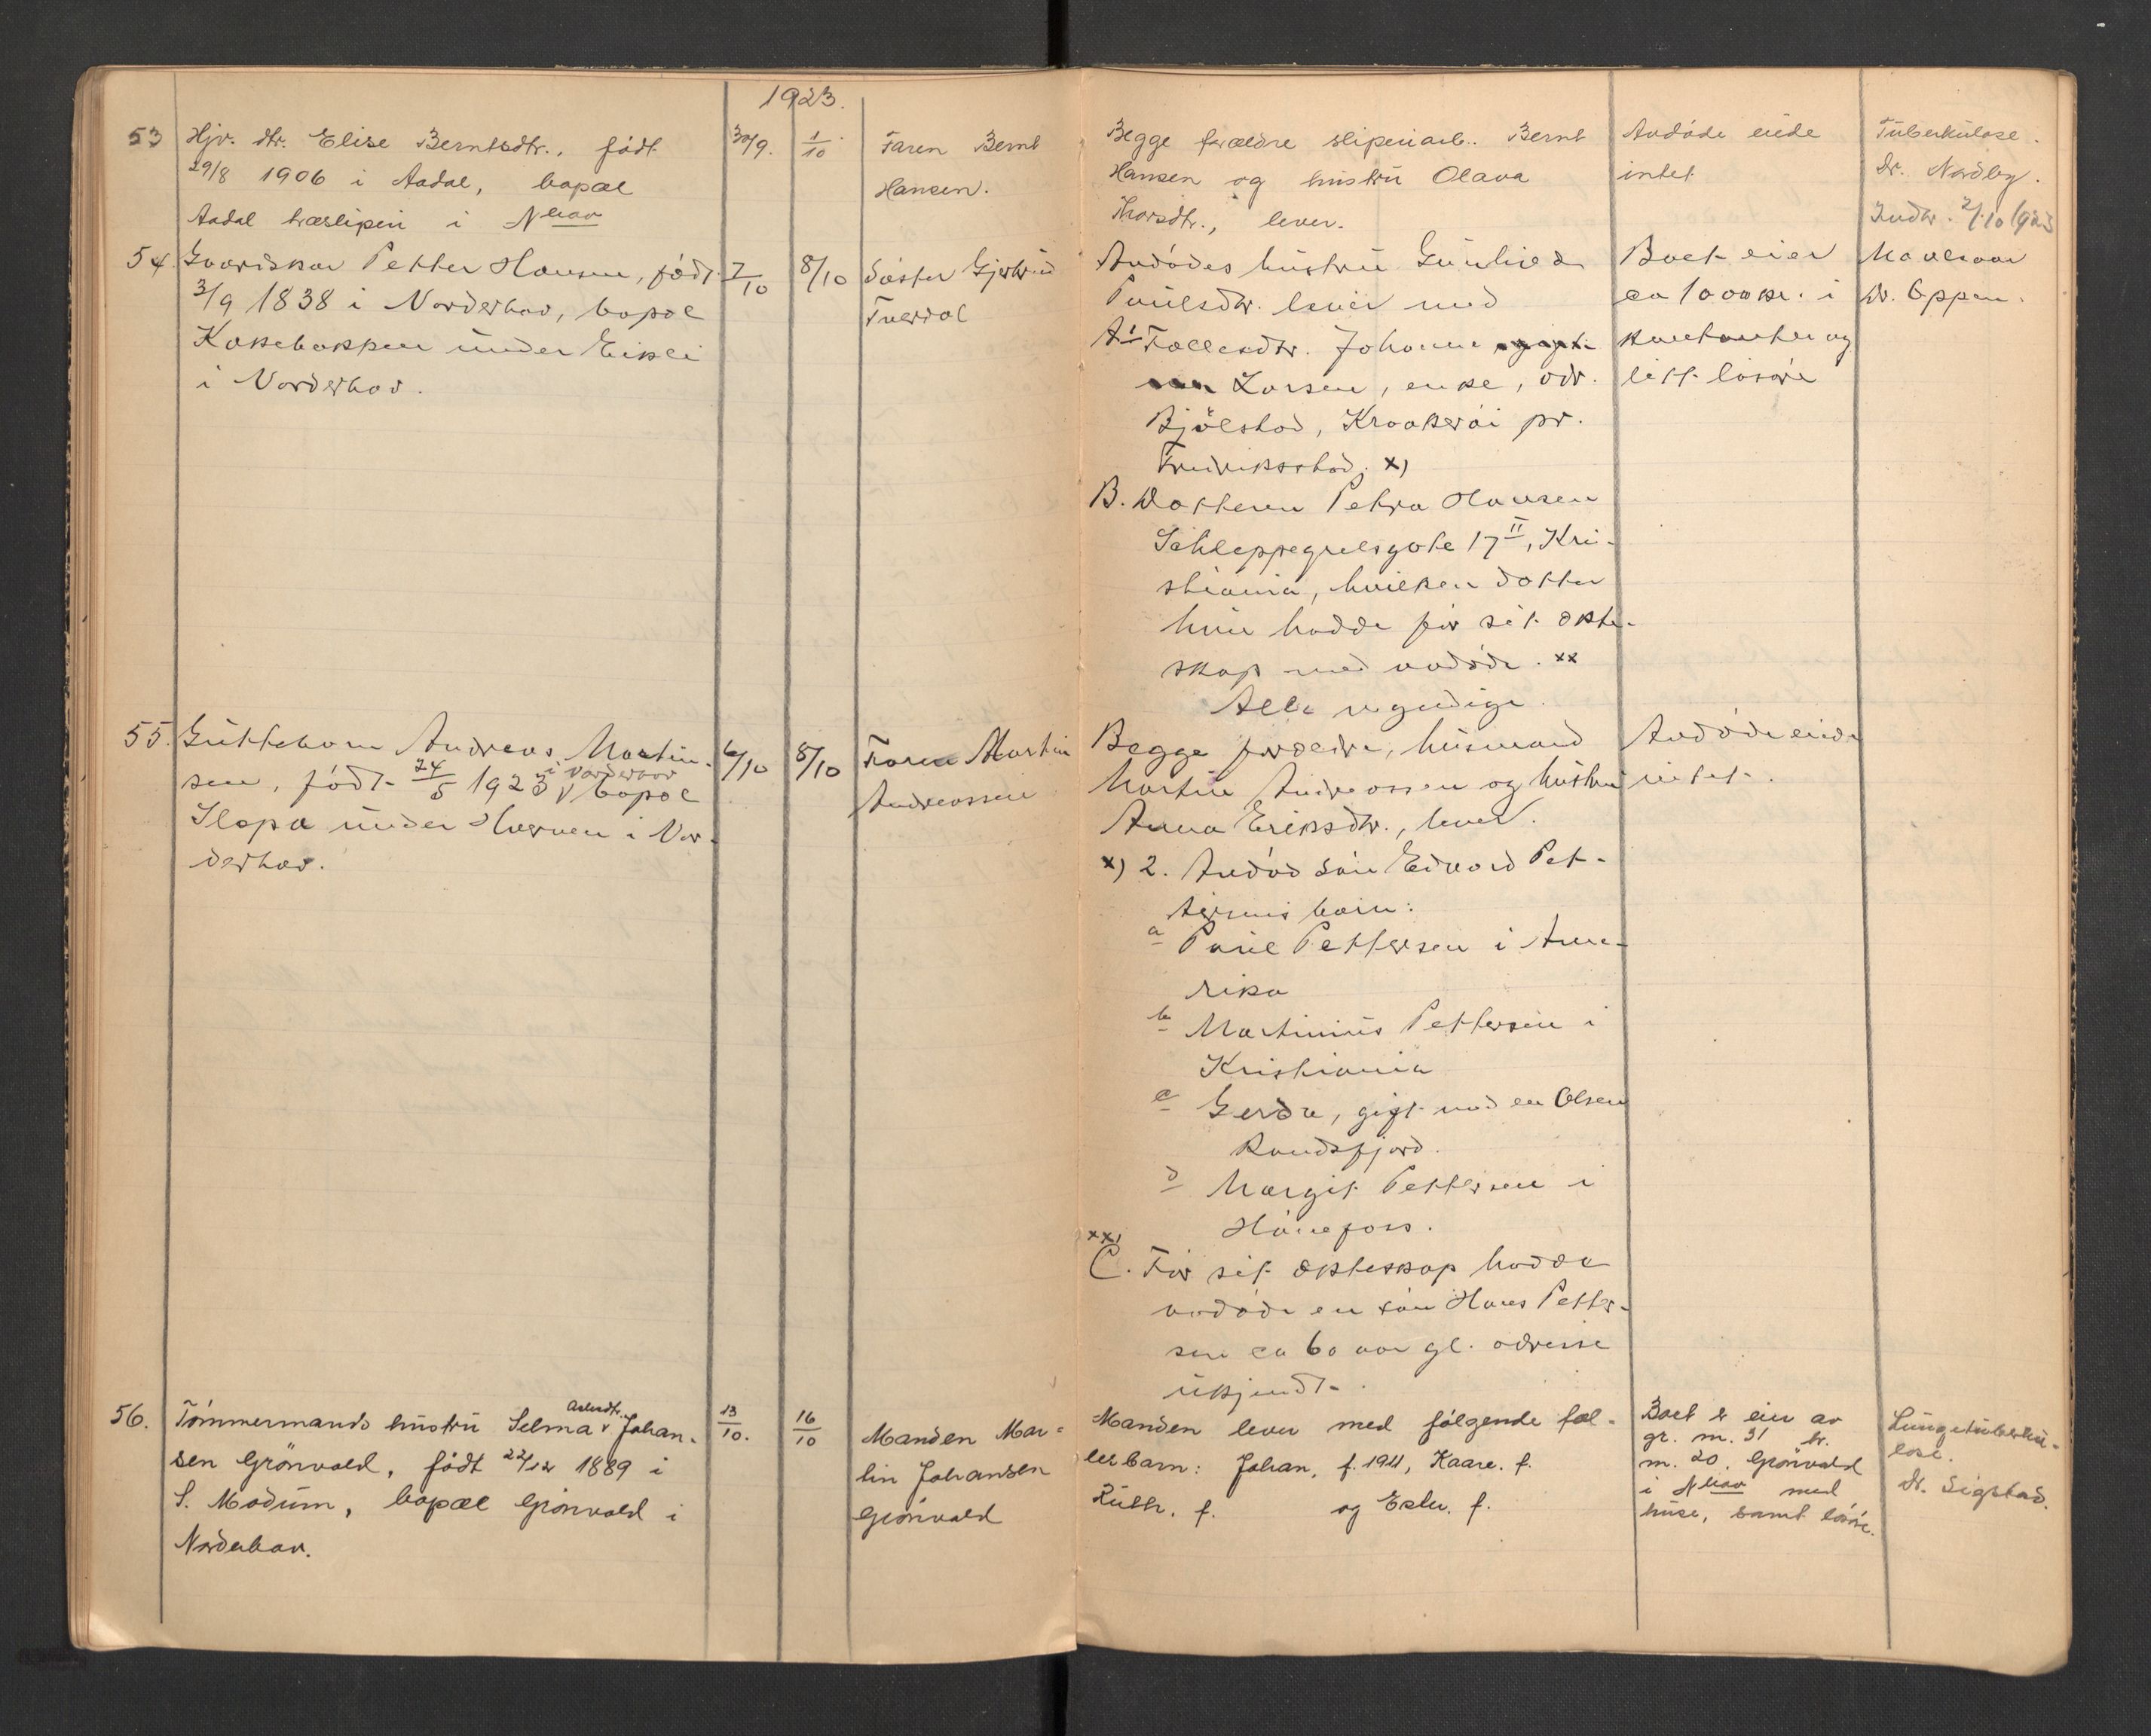 1923.
53 Hjv. dtr. Elise Berntsdtr., født
29/8 1906 i Aadal, bopæl
Aadal træsliperi i Nhov
30/9.
1/10
Faren Bernt
Hansen.
Begge forældre sliperiarb. Bernt
Hansen og hustru Olava
Thorsdtr., lever.
Avdøde eiede
intet
Tuberkulose.
Dr. Nordby.
Indb. 2/10 1923
54. Gaardskar Petter Hansen, født
3/9 1838 i Norderhov, bopæl
Kokkebakken under Eikli
i Norderhov.
7/10
8/10
Søster Gjertrud
Tverdal
Avdødes hustru Gunhild
Paulsdtr. lever med
A 1 Fællesdtr. Johanne
Larsen, enke, adr.
Bjølstad, Kraakerøi pr.
Fredriksstad. x)
B. Datteren Petra Hansen
Schleppegrelsgate 17 II, Kri-
stiania, hvilken datter
hun hadde før sit ekte-
skap med avdøde. xx
Alle myndige.
Boet eier
ca 1000 kr. i
kontanter og
litt løsøre
Marasm
Dr. Oppen.
55. Guttebarn Andreas Martin-
sen, født 24/5 1923 i Norderhov bopæl
Ilopa under Hverven i Nor-
derhov.
6/10
8/10
Faren Martin
Andreassen
Begge forældre, husmand
Martin Andreassen og hustru
Anna Eriksdtr., lever.
Avdøde eiede
intet.
x) 2. Avdød søn Edvard Pet-
tersens barn:
a Paul Pettersen i Ame-
rika
b Martinius Pettersen i
Kristiania
c Gerda, gift med en Olsen
Randsfjord.
d Margit Pettersen i
Hønefoss.
xx)
C. Før sit ekteskap hadde
avdøde en søn Hans Petter-
sen ca 60 aar gl. adresse
ukjendt.
56. Tømmermands hustru Selma Aslesdtr. Johan-
sen Grønvold, født 22/12 1889 i
S. Modum, bopæl Grønvold i
Norderhov.
13/10.
16/10
Manden Mar-
tin Johansen
Grønvold
Manden lever med følgende fæl-
lesbarn: Johan, f. 1911, Kaare. f.
Ruth. f. og Ester. f.
Boet er eier av
gr. m. 31 br.
m. 20. Grønvold
i Nhov med
huse, samt løsøre.
Lungetuberku-
lose.
Dr. Sigstad.